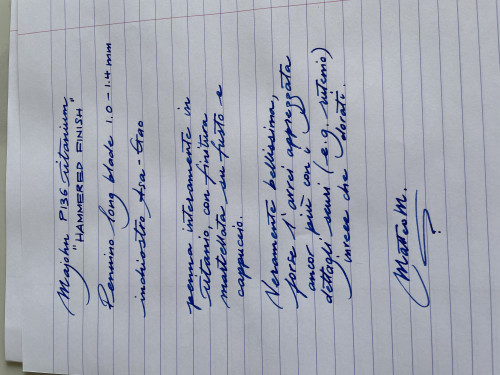 Majohn P136 titanium
"HAMMERED FINISH"
Pennino long blade 1.0-1.4 mm
inchiostro
penna interamente in
titanio, con finitura
martellata su fusto e
cappuccio.
Veramente bellissima,
forse l'avrei apprezzata
ancor più con i
dettagli scuri (e.g. rutenio)
invece che dorati.
Matteo M.